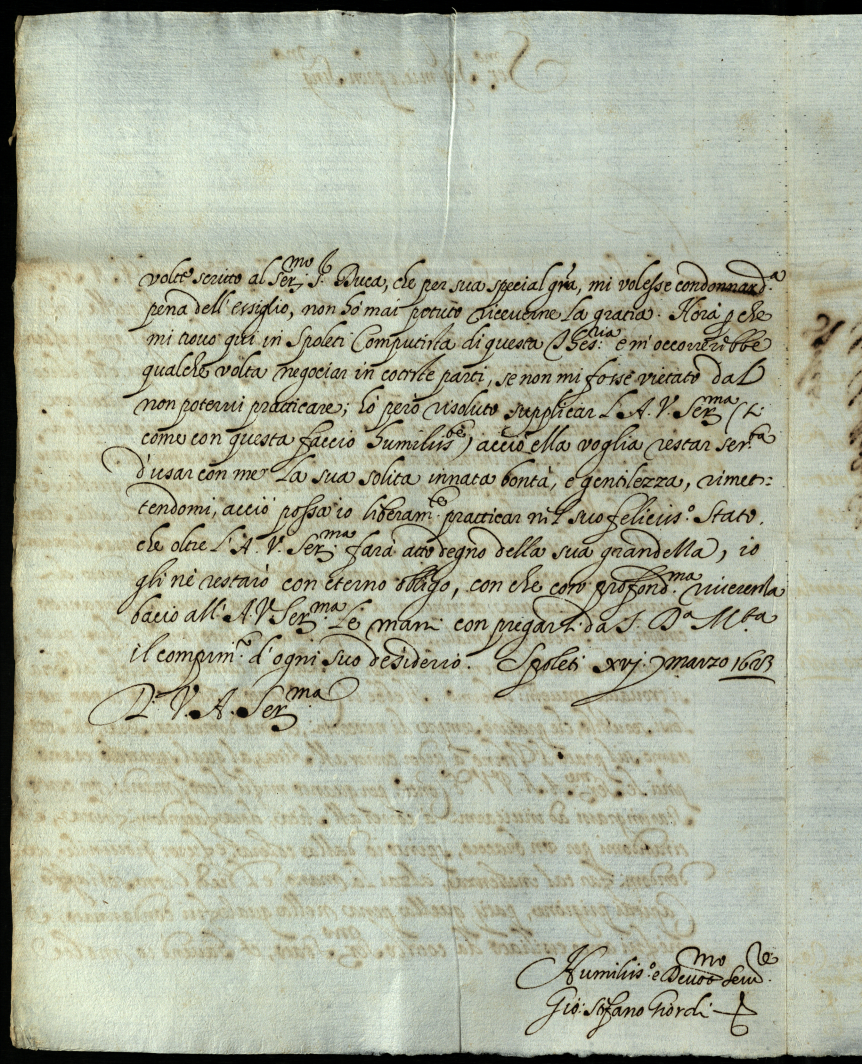 volte scritto al Ser.mo S.r Duca, che per sua special gr̃a, mi volesse condonnar d.a
pena dell'essiglio, non hò mai potuto riceverne la gratia. Hora p che
mi trovo qui in Spoleti Computista di questa Thes.ria e m'occorrerebbe
qualche volta negociar in coteste parti, se non mi fosse vietato dal
non potervi practicare; hò però risoluto supplicar l'A. V. Ser.ma (
come con questa faccio humiliss.te) acciò ella voglia restar ser.ta
d'usar con me la sua solita innata bontà, e gentilezza, rimet=
tendomi, acciò possa io liberam.te practicar nel suo feliciss.o Stato,
che oltre l'A. V. Ser.ma farà atto degno della sua grandezza, io
gli nè restarò con eterno obligo, con che con profond.ma riverenza
bacio all'A V Ser.ma le mani con pregarli da S. D.a M.tà
il compim.to d'ogni suo desiderio. Spoleti xvj. Marzo 1623
D. V. A. Ser.ma
Humiliss.o e Devot.mo Ser.re
Gio: Stefano